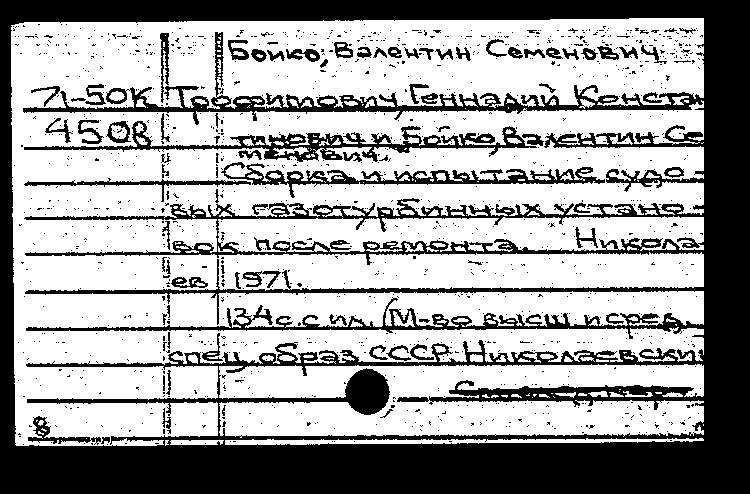 Бойко, Валентин Семенович
71-50К Трофимович, Геннадий Конста-
450В тинович и Бойко, Валентин Се-
менович.
Сборка и испытание судо-
вых газотурбинных устано-
вок после ремонта. Никола-
ев 1971.
134 с. с ил. (М-во высш. и сред.
спец. образ СССР. Николаевский
8